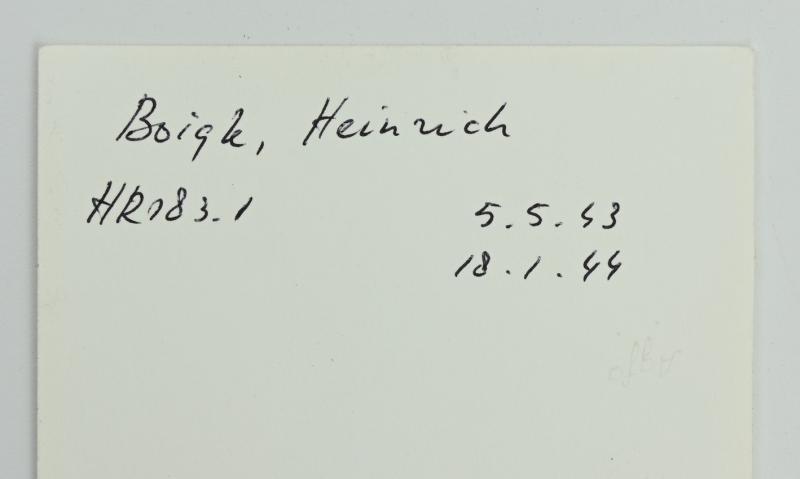 Boigk, Heinrich
HR183.1 5.5.43
18.1.44